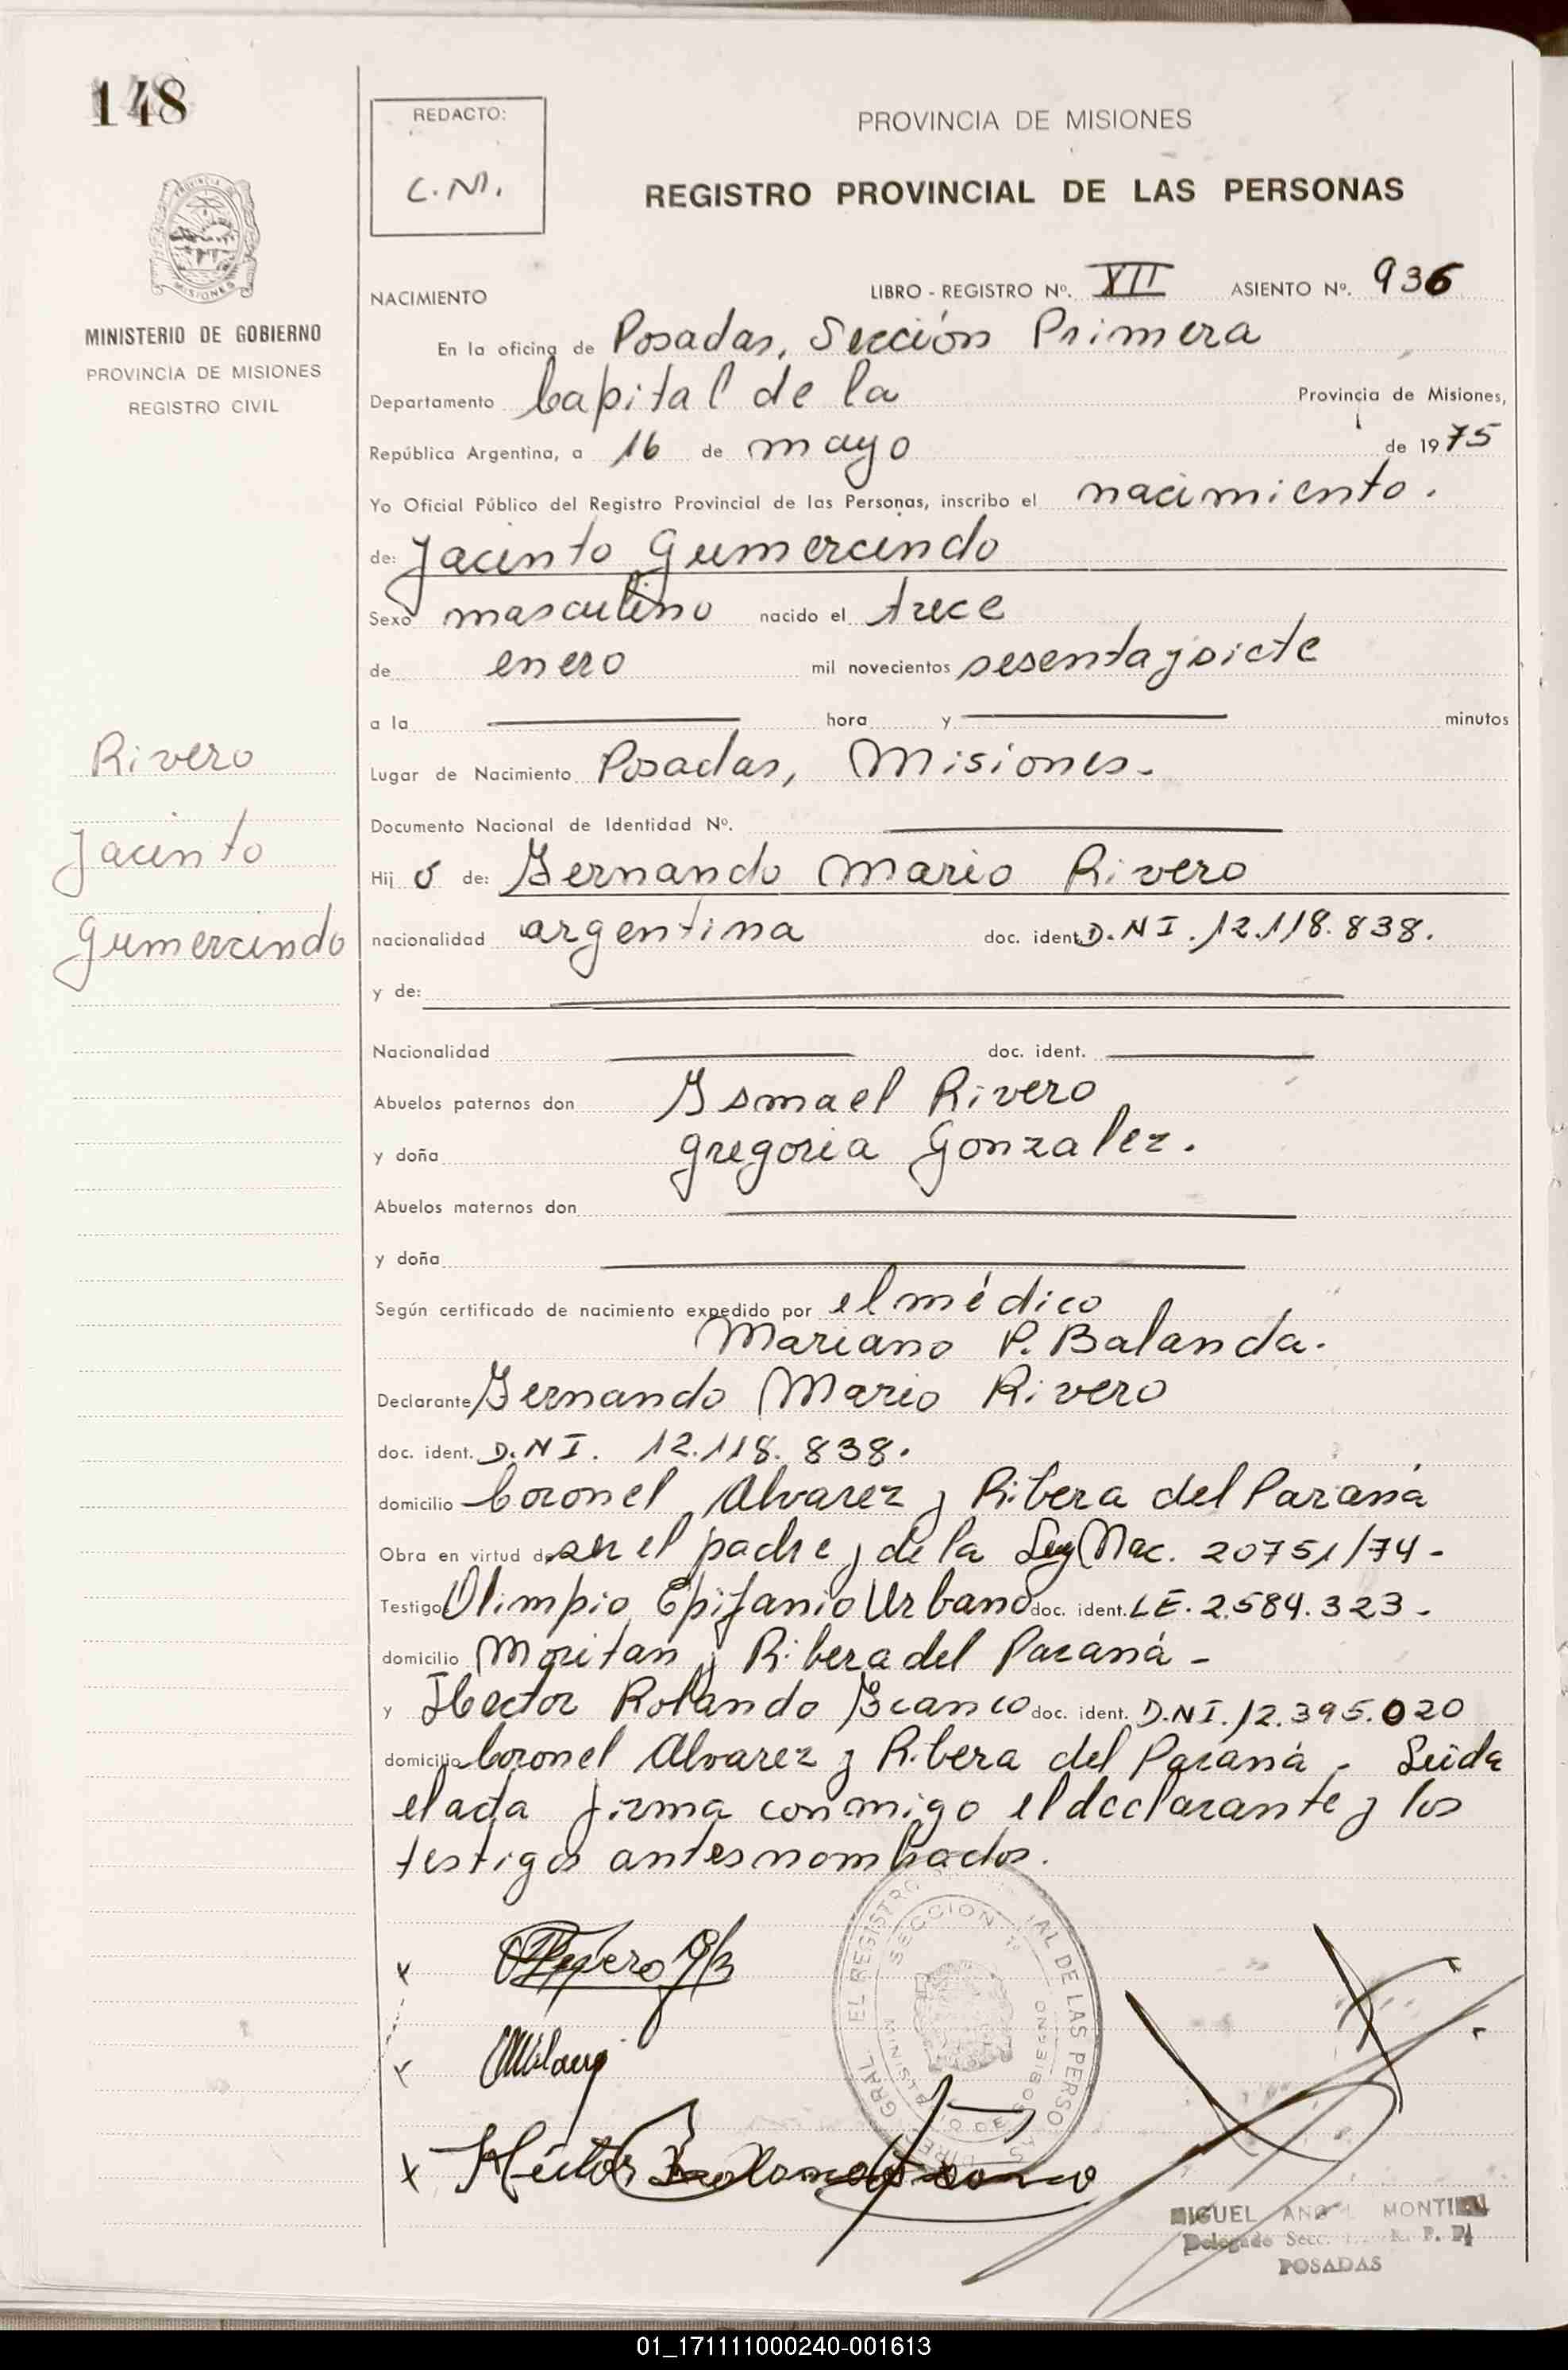 148
REDACTO:
C.M.
PROVINCIA DE MISIONES
REGISTRO PROVINCIAL DE LAS PERSONAS
MINISTERIO DE GOBIERNO
PROVINCIA DE MISIONES
REGISTRO CIVIL
NACIMIENTO LIBRO - REGISTRO Nº. XII ASIENTO Nº. 936
En la oficina de Posadas, Sección Primera
Departamento Capital de la Provincia de Misiones,
República Argentina, a 16 de mayo de 1975
Yo Oficial Público del Registro Provincial de las Personas, inscribo el nacimiento.
de: Jacinto Gumercindo
Sexo masculino nacido el trece
de enero mil novecientos sesenta y siete
a la hora y minutos
Lugar de Nacimiento Posadas, Misiones.
Documento Nacional de Identidad Nº.
Rivero
Jacinto
Gumercindo
Hij o de: Fernando Mario Rivero
nacionalidad argentina doc. ident. D.N I. 12.118.838.
y de:
Nacionalidad doc. ident.
Abuelos paternos don Ismael Rivero
y doña Gregoria Gonzalez.
Abuelos maternos don
y doña
Según certificado de nacimiento expedido por el médico
Mariano P. Balanda.
Declarante Fernando Mario Rivero
doc. ident. D.N I. 12.118.838.
domicilio Coronel Alvarez y Ribera del Paraná
Obra en virtud de ser el padre y de la Ley Nac. 20751/74-
Testigo: Olimpio Epifanio Urbano doc. ident. LE. 2.584.323-
domicilio Moritan y Ribera del Paraná -
y Hector Rolando doc. ident. D.NI. 12.395.020
domicilio Coronel Alvarez y Ribera del Paraná - Leida
el acta firma conmigo el declarante y los
testigos antes nombrados.
SECCION 1º
MINISTERIO DE GOBIERNO
MIGUEL ANGEL
Delegado Secc. R. P. P.
POSADAS
01_171111000240-001613